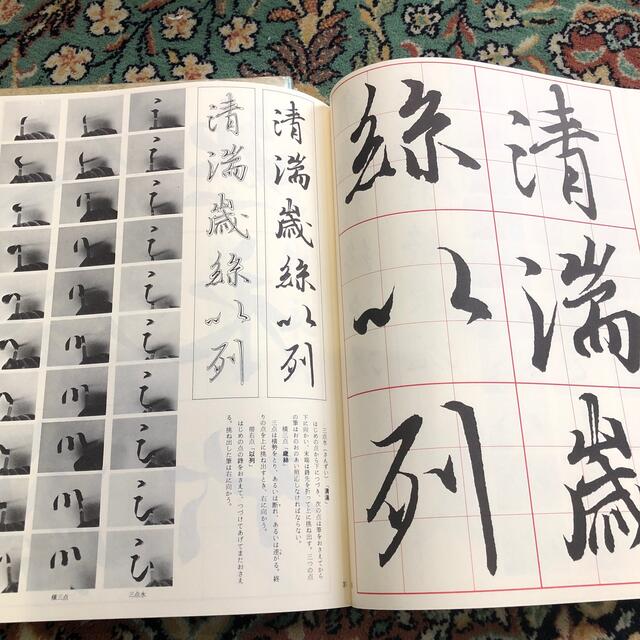 清湍歳
絲以列
清湍歳絲以列
清湍歳絲以列
三点水(さんずい)「清湍」
はじめの点から下につづき、次の点は筆をおさえてから
下に向かい、末端は鋒先を折って上に挑ね出す。三つの点
の筆はおのおのあい照応しなければならない。
横三点「歳絲」
三点は横勢をとり、あるいは断れ、あるいは連がる。終
りの点を上に挑ね出すとき、右に向かう。
帯右点「以列」
はじめの点の鋒をおさえて、つづけてあげてまたおさえ
る。挑ね出した筆は右に向かう。
三点水
横三点